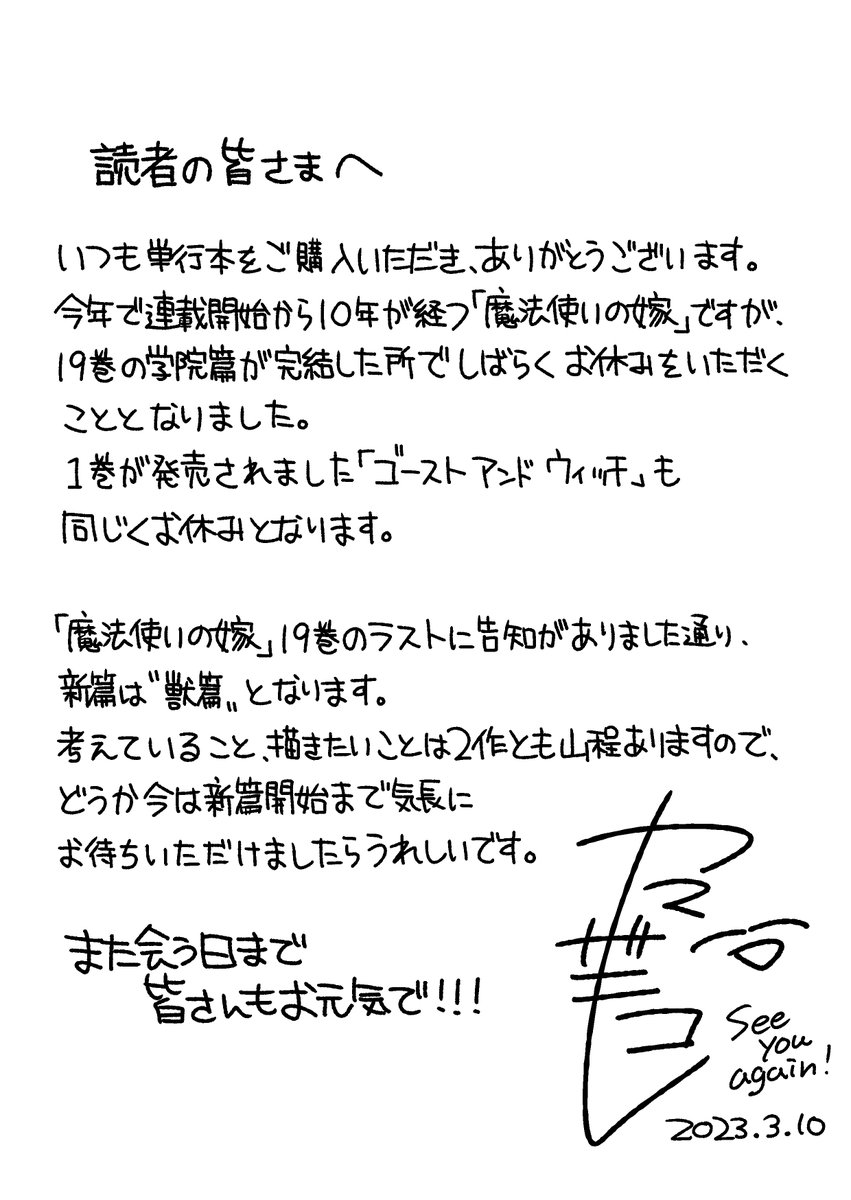 読者の皆さまへ
いつも単行本をご購入いただき、ありがとうございます。
今年で連載開始から10年が経つ「魔法使いの嫁」ですが、
19巻の学院篇が完結した所でしばらくお休みをいただく
こととなりました。
1巻が発売されました「ゴースト アンド ウィッチ」も
同じくお休みとなります。
「魔法使いの嫁」19巻のラストに告知がありました通り、
新篇は〝獣篇〟となります。
考えていること、描きたいことは2作とも山程ありますので、
どうか今は新篇開始まで気長に
お待ちいただけましたらうれしいです。
また会う日まで
皆さんもお元気で!!!
See
you
again!
2023.3.10